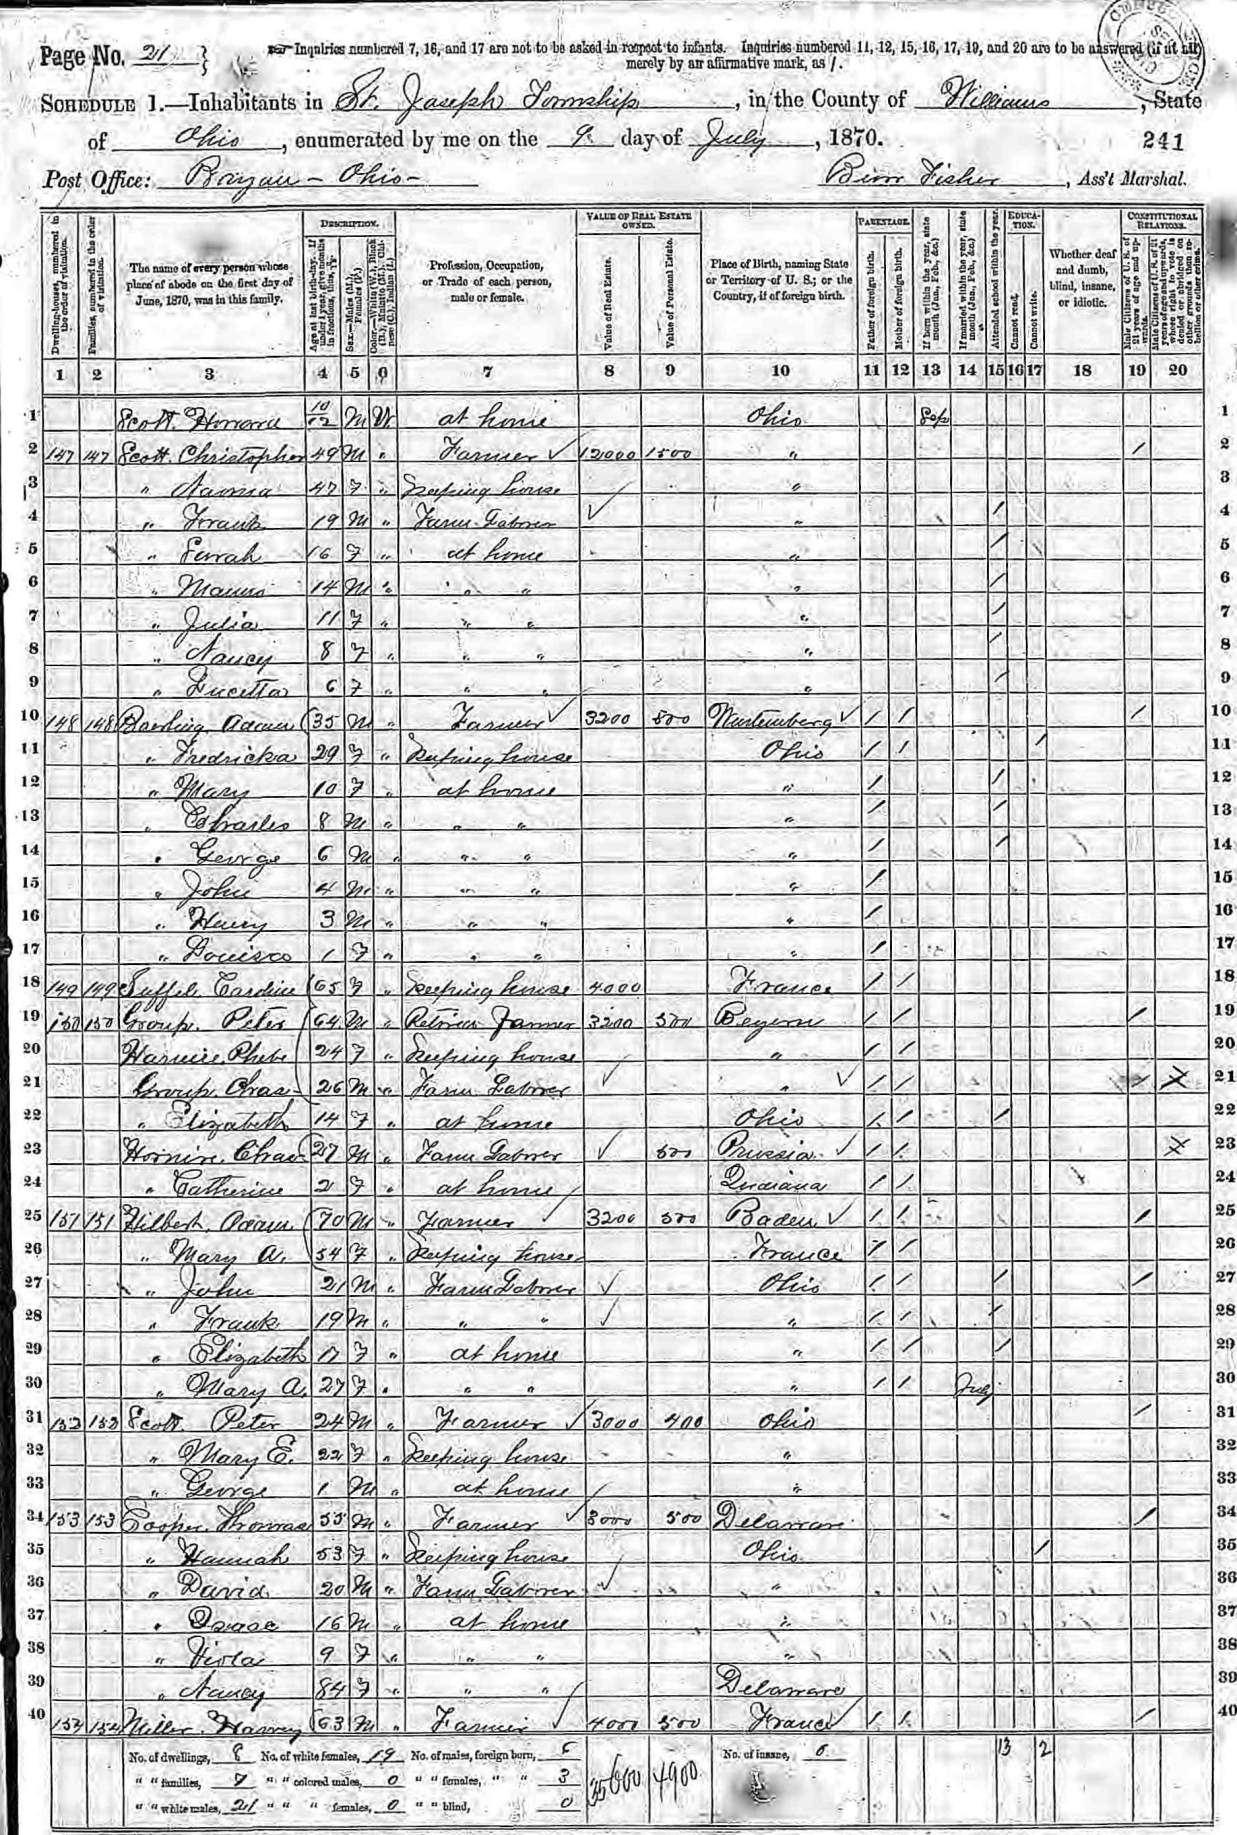 Page No. 21 } Inquiries numbered 7, 16, and 17 are not to be asked in respect to infants. Inquiries numbered 11, 12, 15, 16, 17, 19, and 20 are to be answered (if at all)
merely by an affirmative mark, as /.
SCHEDULE 1.—Inhabitants in St. Joseph Township, in the County of Williams, State
of Ohio, enumerated by me on the 9 day of July, 1870. 241
Post Office: Bryan - Ohio - Fisher, Ass't Marshal.
Dwelling-houses, numbered in the order of visitation.
Families, numbered in the order of visitation.
The name of every person whose place of abode on the first day of June, 1870, was in this family.
DESCRIPTION.
Age at last birth-day. If under 1 year, give months in fractions, thus, 3/12
Sex.—Males (M.), Females (F.)
Color.—White (W.), Black (B.), Mulatto (M.), Chinese (C.), Indian (I.)
Profession, Occupation, or Trade of each person, male or female.
VALUE OF REAL ESTATE OWNED.
Value of Real Estate.
Value of Personal Estate.
Place of Birth, naming State or Territory of U. S.; or the Country, if of foreign birth.
PARENTAGE.
Father of foreign birth.
Mother of foreign birth.
If born within the year, state month (Jan., Feb., &c.)
If married within the year, state month (Jan., Feb., &c.)
Attended school within the year.
EDUCATION.
Cannot read.
Cannot write.
Whether deaf and dumb, blind, insane, or idiotic.
CONSTITUTIONAL RELATIONS.
Male Citizens of U. S. of 21 years of age and upwards.
Male Citizens of U. S. of 21 years of age and upwards, whose right to vote is denied or abridged on other grounds than rebellion or other crime.
1 2 3 4 5 6 7 8 9 10 11 12 13 14 15 16 17 18 19 20
1 Scott, 10/12 M W. at home Ohio Sep 1
2 147 147 Scott, Christopher 49 M " Farmer ✓ 12000 1500 " / 2
3 " Naoma 47 F " Keeping house " 3
4 " Frank 19 M " Farm Laborer ✓ " / 4
5 " Sarah 16 F " at home " / 5
6 " 14 M " " " " / 6
7 " Julia 11 F " " " " / 7
8 " Nancy 8 F " " " " / 8
9 " Lucetta 6 F " " " " / 9
10 148 148 Adam 35 M " Farmer ✓ 3200 800 Wurtemberg ✓ / / / 10
11 " Fredricka 29 F " Keeping house Ohio / / / 11
12 " Mary 10 F " at home " / / 12
13 " Charles 8 M " " " " / / 13
14 " George 6 M " " " " / / 14
15 " John 4 M " " " " / 15
16 " Henry 3 M " " " " / 16
17 " Louisa 1 F " " " " / 17
18 149 149 Caroline 65 F " Keeping house 4000 France / / 18
19 150 150 Group, Peter 64 M " Retired Farmer 3200 500 Beyern / / / 19
20 Phebe 24 F " Keeping house " / / 20
21 Group, Chas 26 M " Farm Laborer ✓ " ✓ / / / X 21
22 " Elizabeth 14 F " at home Ohio / / / 22
23 Chas 27 M " Farm Laborer ✓ 500 Prussia ✓ / / X 23
24 " Catherine 2 F " at home Indiana / / 24
25 151 151 Hilbert, Adam 70 M " Farmer ✓ 3200 500 Baden ✓ / / / 25
26 " Mary A. 54 F " Keeping house France / / 26
27 " John 21 M " Farm Laborer ✓ Ohio / / / / 27
28 " Frank 19 M " " " ✓ " / / / 28
29 " Elizabeth 17 F " at home " / / / 29
30 " Mary A. 27 F " " " " / / July 30
31 152 152 Scott, Peter 24 M " Farmer ✓ 3000 400 Ohio / 31
32 " Mary E. 22 F " Keeping house " 32
33 " George 1 M " at home " 33
34 153 153 Cooper, Thomas 55 M " Farmer ✓ 3000 500 Delaware / 34
35 " Hannah 53 F " Keeping house Ohio / 35
36 " David 20 M " Farm Laborer ✓ " 36
37 " Isaac 16 M " at home " 37
38 " Viola 9 F " " " " 38
39 " Nancy 84 F " " " Delaware 39
40 154 154 Miller, Harvey 63 M " Farmer ✓ 4000 500 France / / / 40
No. of dwellings, 8 No. of white females, 19 No. of males, foreign born, 6 35600 4900 No. of insane, 0 13 2
" " families, 7 " " colored males, 0 " " females, " " 3
" " white males, 21 " " " females, 0 " " blind, 0